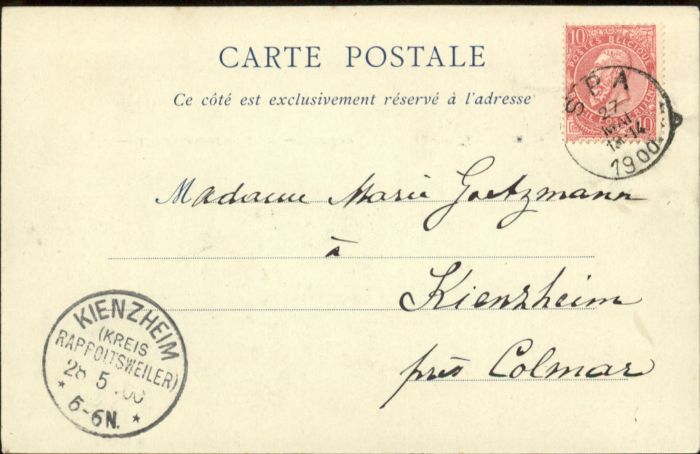 CARTE POSTALE
Ce côté est exclusivement réservé à l'adresse
10
POSTES BELGIQUE
10
SPA
27
MAI
13-14
1900
Madame Marie Goetzmann
à
Kienzheim
près Colmar
KIENZHEIM
(KREIS
RAPPOLTSWEILER)
28 5 .00
* 5-6N. *